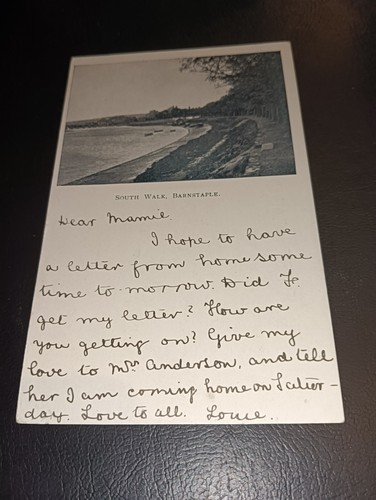 South Walk, Barnstaple.
Dear Mamie.
I hope to have
a letter from home some
time to-morrow. Did F.
get my letter? How are
you getting on? Give my
love to Mrs Anderson, and tell
her I am coming home on Satur-
day. Love to all. Louie.